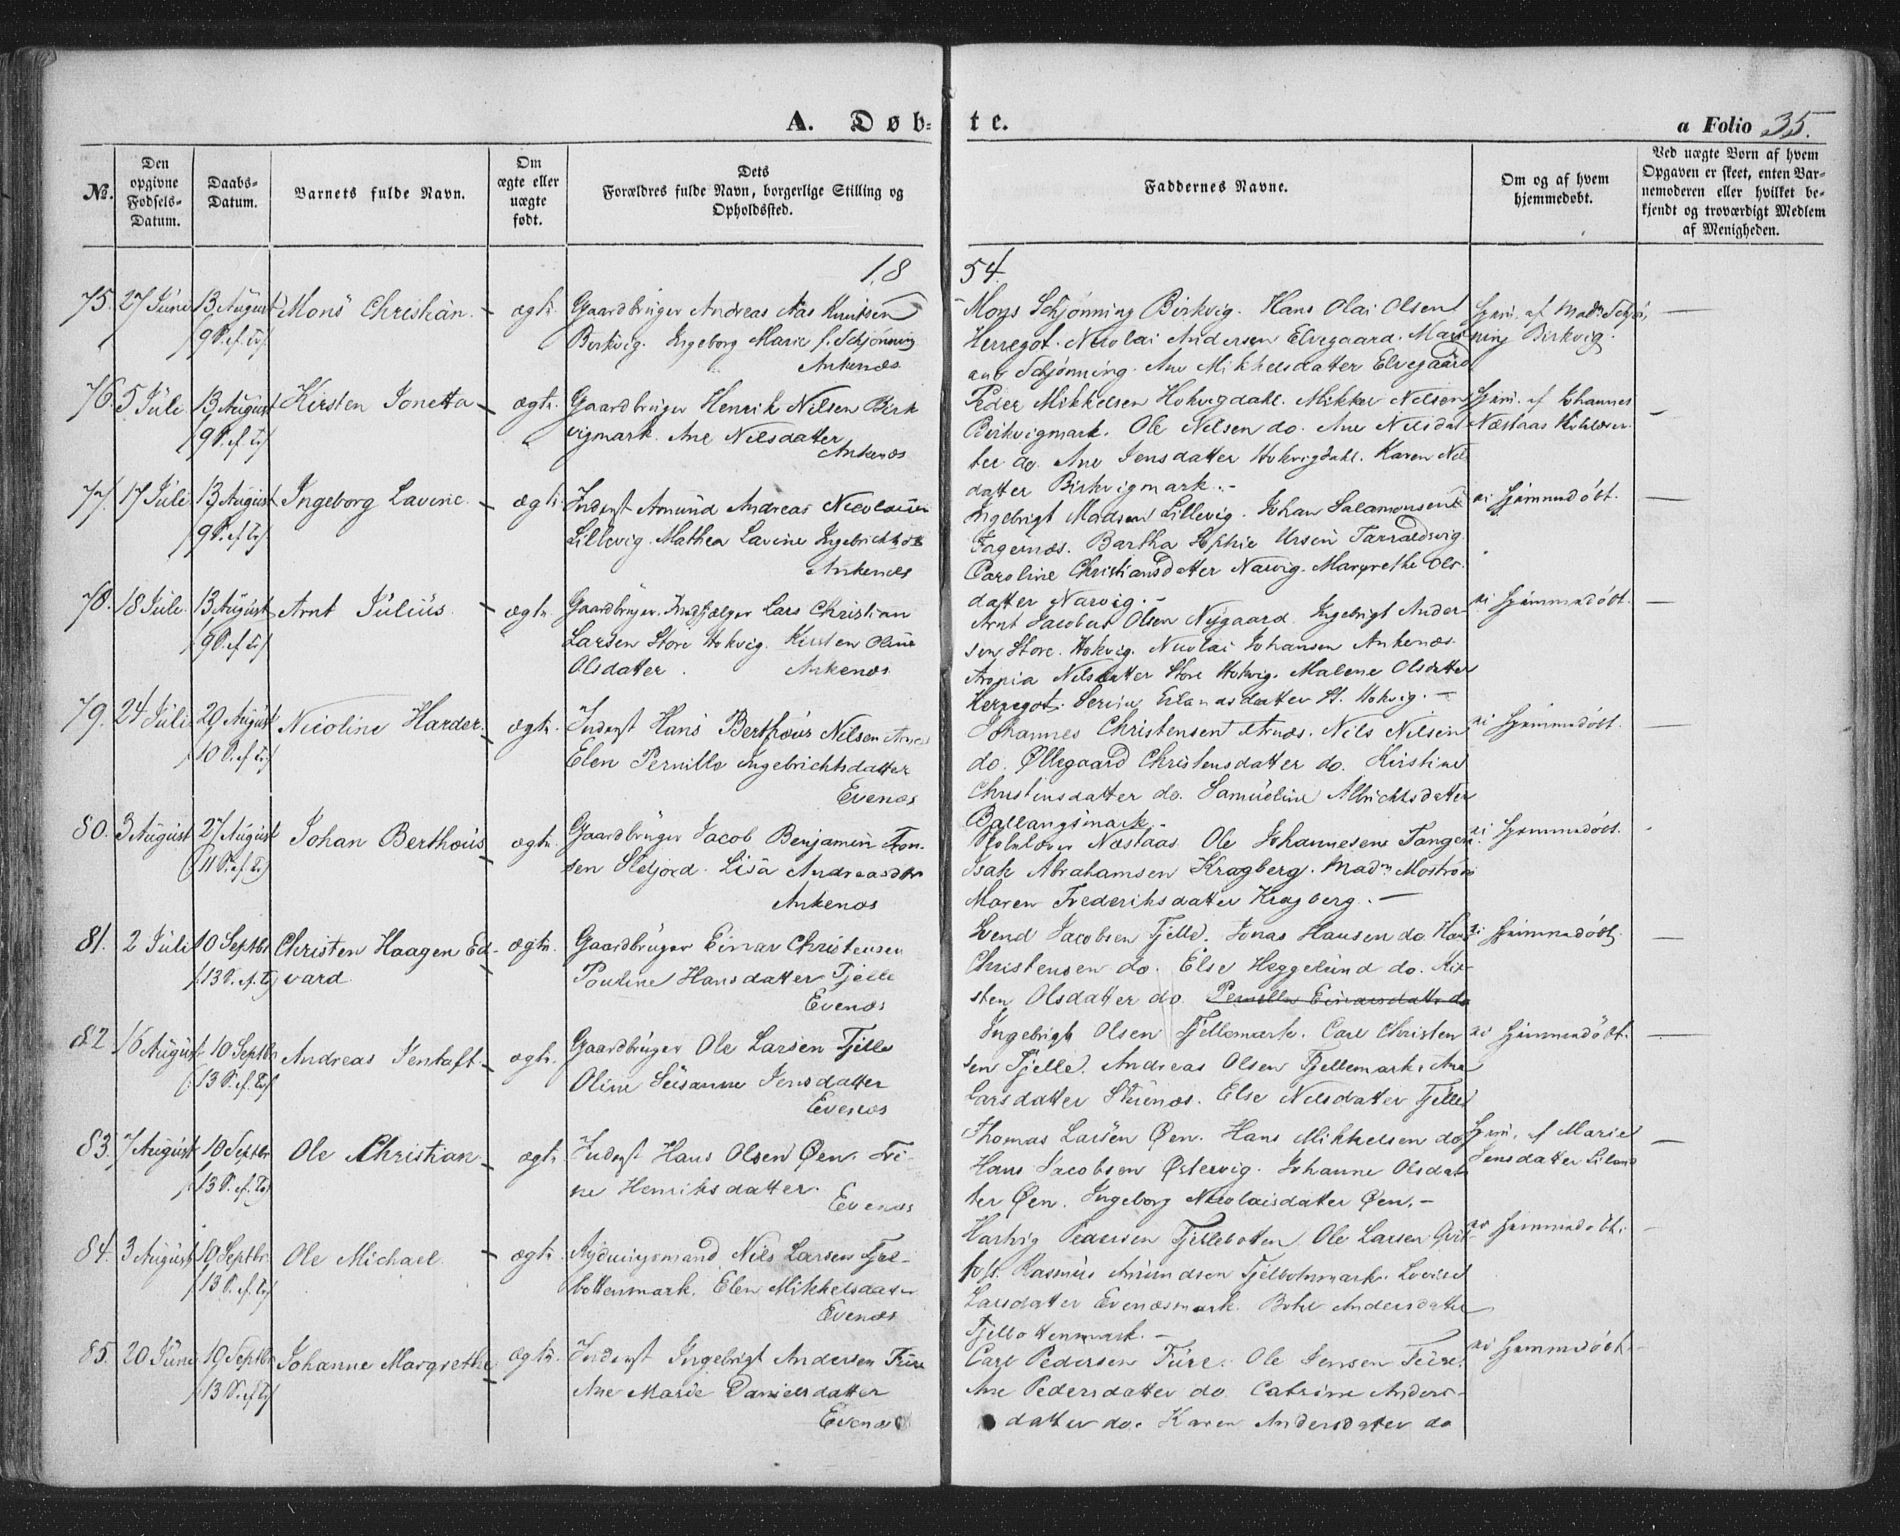 A. Døbte.
a Folio 35.
№.
Den opgivne Fødsels-Datum.
Daabs-Datum.
Barnets fulde Navn.
Om ægte eller uægte født.
Dets Forældres fulde Navn, borgerlige Stilling og Opholdssted.
Faddernes Navne.
Om og af hvem hjemmedøbt.
Ved uægte Børn af hvem Opgaven er skeet, enten Barnemoderen eller hvilket bekjendt og troværdigt Medlem af Menigheden.
1854
75. 27 Juni 13 August Mons Christian ægte Gaardbruger Andreas Aas Knutsen
9 S. ef. Tr. Birkvig. Ingeborg Marie f. Schjønning
Ankenæs
Mons Schjønning Birkvig. Hans Olai Olsen
Herregot. Nicolai Andersen Elvegaard.
Schjønning. Ane Mikkelsdatter Elvegaard
Hjem. af Mad. Schjønning Birkvig.
76. 5 Juli 13 August Kirsten Jonetta ægte Gaardbruger Henrik Nilsen Birk
9 S. ef. Tr. vigmark. Ane Nilsdatter
Ankenæs
Peder Mikkelsen Hokvigdahl. Mikkel Nilsen
Birkvigmark. Ole Nilsen do. Ane Nilsdat
ter do. Ane Jensdatter Hokvigdahl. Karen Nils
datter Birkvigmark.
Hjem. af Johannes
Næstaas
77. 17 Juli 13 August Ingeborg Lavine ægte Inderst Amund Andreas Nicolaisen
9 S. ef. Tr. Lillevig. Mathea Lavine
Ankenæs
Ingebrigt Madsen Lillevig. Johan Salamonsen
Fagernæs. Bartha Sophie Ursin Taraldsvig.
Caroline Christiansdatter Narvig. Margrethe Ols
datter Narvig.
ei hjemmedøbt.
78. 18 Juli 13 August Arnt Julius ægte Gaardbruger, Indfjælger Lars Christian
9 S. ef. Tr. Larsen Store Hokvig. Kirsten Oline
Olsdatter. Ankenæs
Arnt Jacobus Olsen Nygaard. Ingebrigt Ander
sen Store Hokvig. Nicolai Johansen Ankenæs.
Nilsdatter Store Hokvig. Malene Olsdatter
Herregot. St. Hokvig.
ei hjemmedøbt.
79. 24 Juli 20 August Nicoline Harder ægte Inderst Hans Berthous Nilsen
10 S. ef. Tr. Elen Pernille Ingebrichtsdatter
Evenæs
Johannes Christensen. Nils Nilsen
do. Øllegaard Christensdatter do. Kirstine
Christensdatter do. Samueline Albrichtsdatter
Ballangsmark.
ei hjemmedøbt.
80. 3 August 27 August Johan Berthous ægte Gaardbruger Jacob Benjamin
11 S. ef. Tr. sen Skjeford. Lisa Andreasdtr
Ankenæs
Næstaas. Ole Johannesen Tangen
Isak Abrahamsen Kragberg. Madm Mostrøm
Maren Frederiksdatter Kragberg.
ei hjemmedøbt.
81. 2 Juli 10 Septbr Christen Haagen Ed- ægte Gaardbruger Einar Christensen
13 S. ef. Tr. vard Pouline Hansdatter Fjelle
Evenæs
Svend Jacobsen Fjelle. Jonas Hansen do. Hans
Christensen do. Else Heggelund do. Kir
sten Olsdatter do. Pernille Einarsdatter do
ei hjemmedøbt.
82. 16 August 10 Septbr Andreas Jentoft ægte Gaardbruger Ole Larsen Fjelle
13 S. ef. Tr. Oline Susanne Jensdatter
Evenæs
Ingebrigt Olsen Fjellemark. Carl Christen
sen Fjelle. Andreas Olsen Fjellemark. Ane
Larsdatter Stuenæs. Else Nilsdatter Fjelle
ei hjemmedøbt.
83. 7 August 10 Septbr Ole Christian ægte Inderst Hans Olsen Øen. Tri-
13 S. ef. Tr. ne Henriksdatter.
Evenæs
Thomas Larsen Øen. Hans Mikkelsen do
Hans Jacobsen Østervig. Johanne Olsdat
ter Øen. Ingeborg Nicolaisdatter Øen.
Hjem. af Marie
Jensdatter Liland
84. 3 August 10 Septbr Ole Michael ægte Rydningsmand Nils Larsen Fjel-
13 S. ef. Tr. bottenmark. Elen Mikkelsdatter
Evenæs
Hartvig Pedersen Fjelbotten. Ole Larsen
Rasmus Amundsen Fjelbotnmark. Lovise
Larsdatter Evenæsmark. Andersdatter
Fjelbottenmark.
ei hjemmedøbt.
85. 20 Juni 10 Septbr Johanne Margrethe ægte Inderst Ingebrigt Andersen Fure
13 S. ef. Tr. Ane Marie Danielsdatter
Evenæs
Carl Pedersen Fure. Ole Jensen Fure.
Ane Pedersdatter do. Catrine Anders-
datter do. Karen Andersdatter do
ei hjemmedøbt.